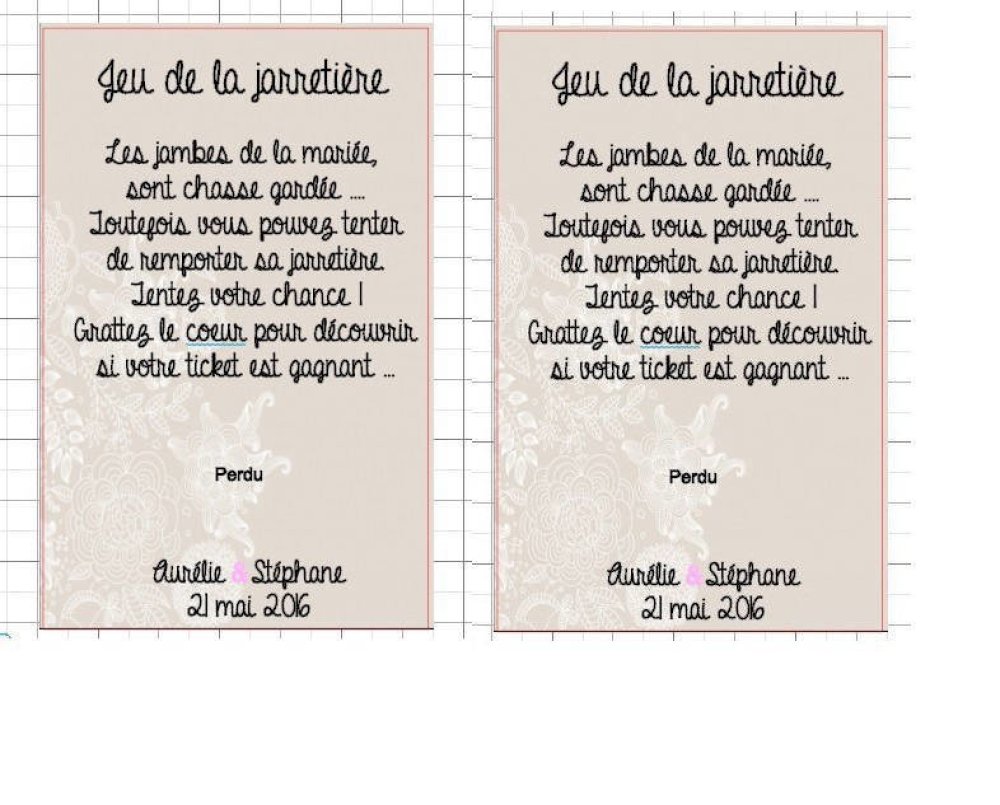 Jeu de la jarretière
Les jambes de la mariée,
sont chasse gardée ....
Toutefois vous pouvez tenter
de remporter sa jarretière.
Tentez votre chance !
Grattez le coeur pour découvrir
si votre ticket est gagnant ...
Perdu
Aurélie & Stéphane
21 mai 2016
Jeu de la jarretière
Les jambes de la mariée,
sont chasse gardée ....
Toutefois vous pouvez tenter
de remporter sa jarretière.
Tentez votre chance !
Grattez le coeur pour découvrir
si votre ticket est gagnant ...
Perdu
Aurélie & Stéphane
21 mai 2016